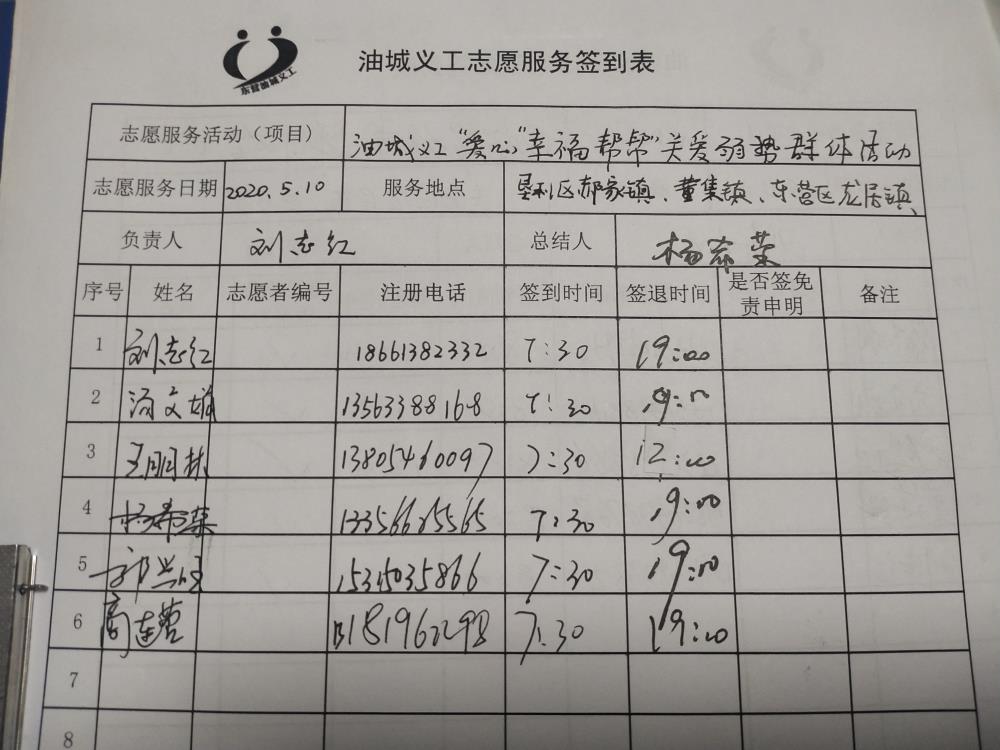 东营油城义工
油城义工志愿服务签到表
志愿服务活动（项目） 油城义工“爱心”幸福帮帮”关爱弱势群体活动
志愿服务日期 2020.5.10 服务地点 垦利区郝家镇、董集镇、东营区龙居镇
负责人 刘志红 总结人 杨希荣
序号 姓名 志愿者编号 注册电话 签到时间 签退时间 是否签免责申明 备注
1 刘志红 18661382332 7:30 19:00
2 汤文雄 13563388168 7:30 19:00
3 王朋林 13805460097 7:30 12:00
4 杨希荣 7:30 19:00
5 15345035866 7:30 19:00
6 高连营 7:30 19:00
7
8